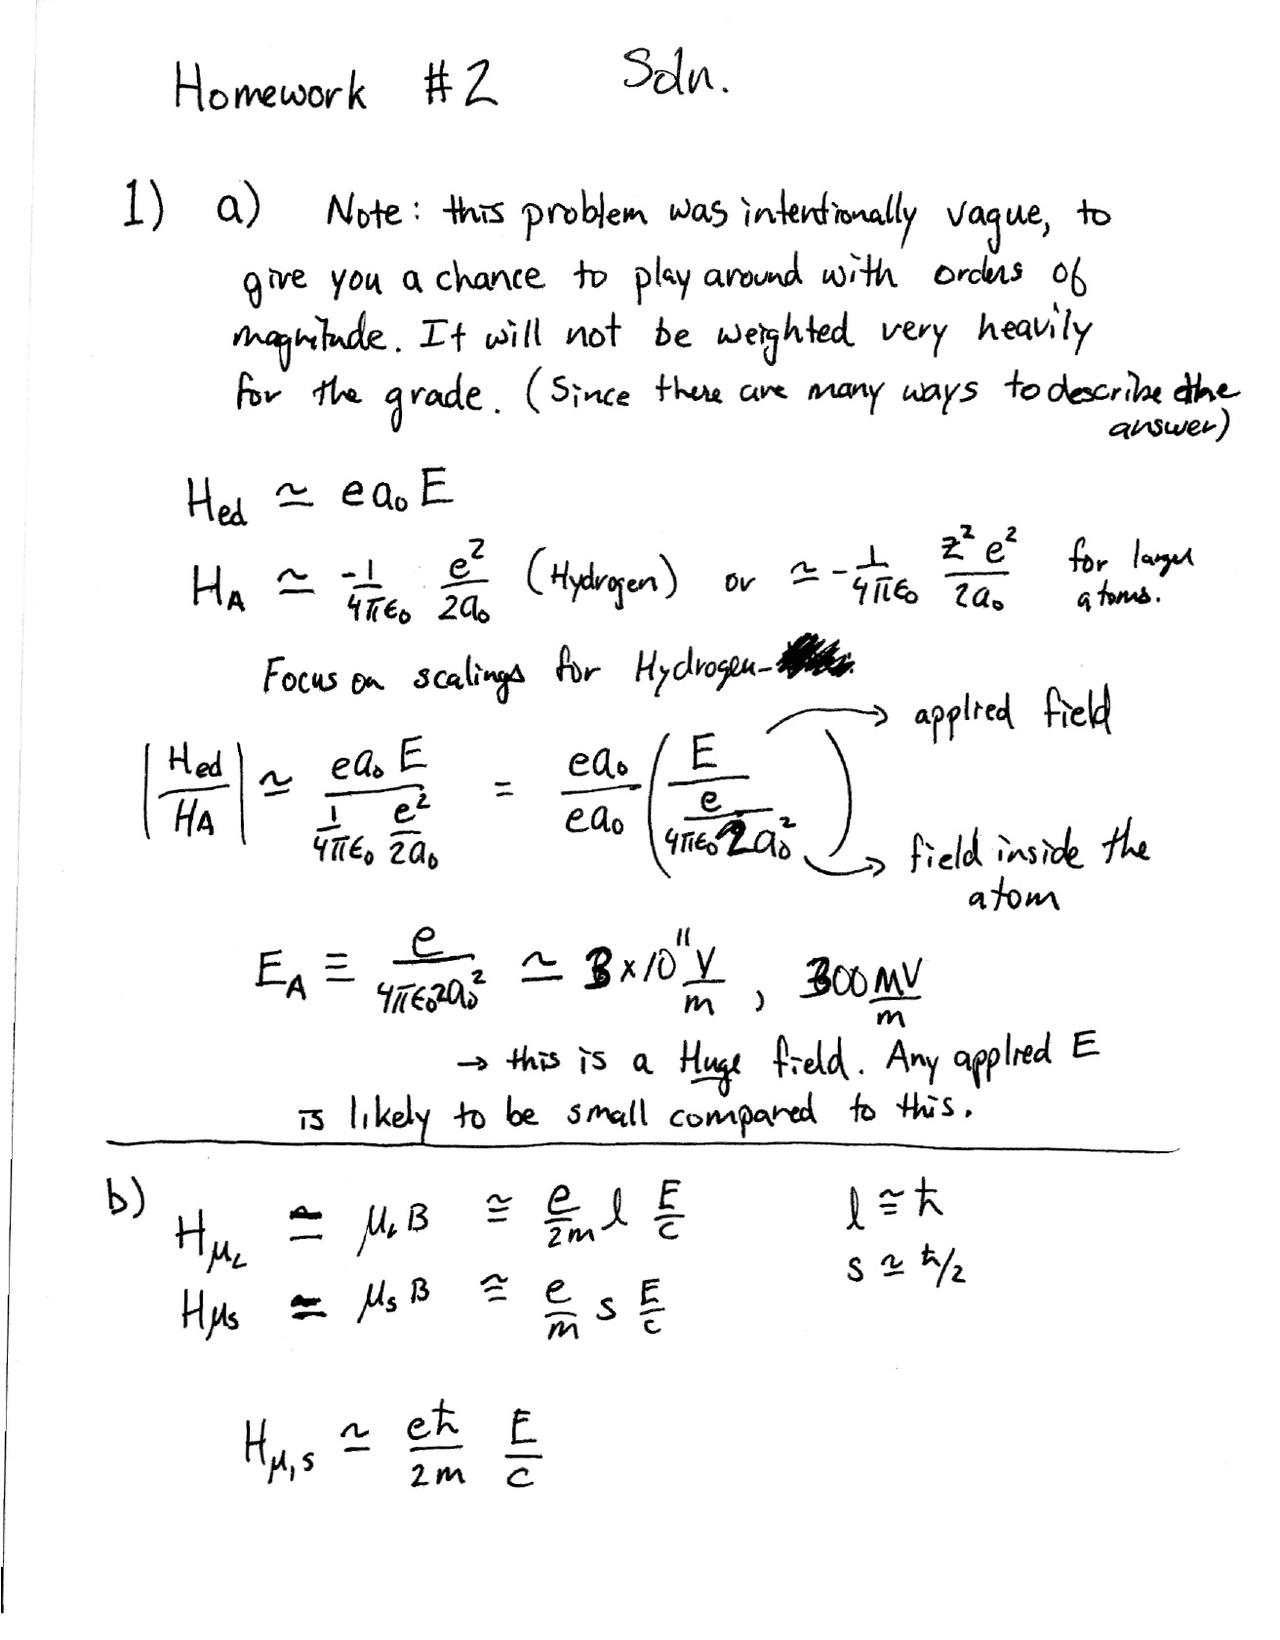 Homework #2 Soln.
1) a) Note: this problem was intentionally vague, to
give you a chance to play around with orders of
magnitude. It will not be weighted very heavily
for the grade. (Since there are many ways to describe the
answer)
H_ed ≃ e a₀ E
H_A ≃ -1/(4πε₀) e²/(2a₀) (Hydrogen) or ≃ -1/(4πε₀) Z²e²/(2a₀) for larger
atoms.
Focus on scalings for Hydrogen-
|H_ed/H_A| ≃ (e a₀ E)/((1/(4πε₀)) e²/(2a₀)) = (e a₀)/(e a₀) (E/(e/(4πε₀ 2a₀²))) → applied field
→ field inside the
atom
E_A ≡ e/(4πε₀ 2a₀²) ≃ 3×10¹¹ V/m, 300 MV/m
→ this is a Huge field. Any applied E
is likely to be small compared to this.
b) H_μL ≃ μ_L B ≅ (e/2m) l (E/c) l ≅ ħ
H_μs ≃ μ_s B ≅ (e/m) s (E/c) s ≃ ħ/2
H_μ,s ≃ (eħ/2m) (E/c)